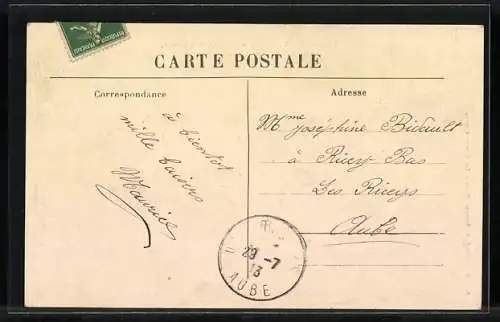 CARTE POSTALE
Correspondance
à bientot
mille baisers
Maurice
Adresse
Mme Joséphine Bidault
à Ricey Bas
Les Riceys
Aube
29 -7
13
AUBE